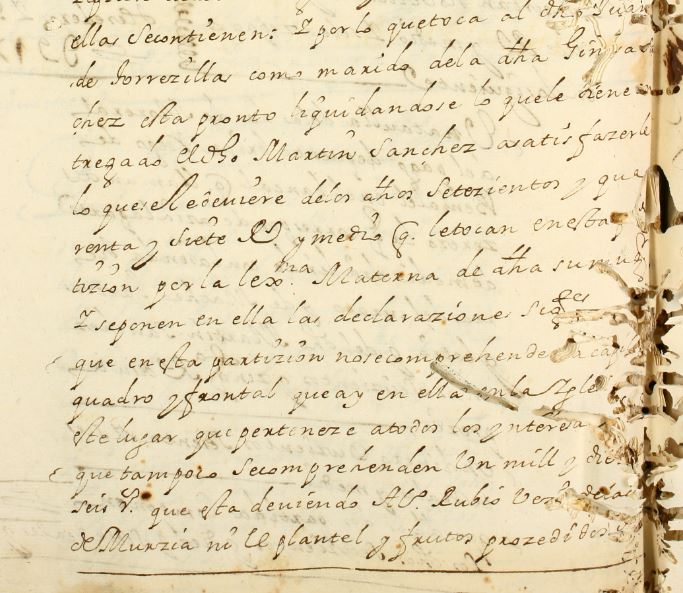 ellas Secontienen: Y por lo quetoca al dho Juan
de Torrezillas como marido dela dha Gin Sa
chez esta pronto liquidandose lo quele tiene
tregado el dho Martin Sanchez asatisfazerle
lo quese le deviere delos dhos Setezientos y qua
renta y siete Rs. y medio q. letocan enesta
tizion por la lexma Materna de dha su mug
Y seponen en ella las declaraziones sigtes
que enesta partizion nosecomprehende la cap
quadro y frontal que ay en ella en la Ygle
este lugar que perteneze atodos los ynteresa
que tampoco secomprehenden Un mill y die
seis Rs. que esta deviendo Al. Rubio Vezo dela
de Murzia ni le plantel y frutos prozedidos